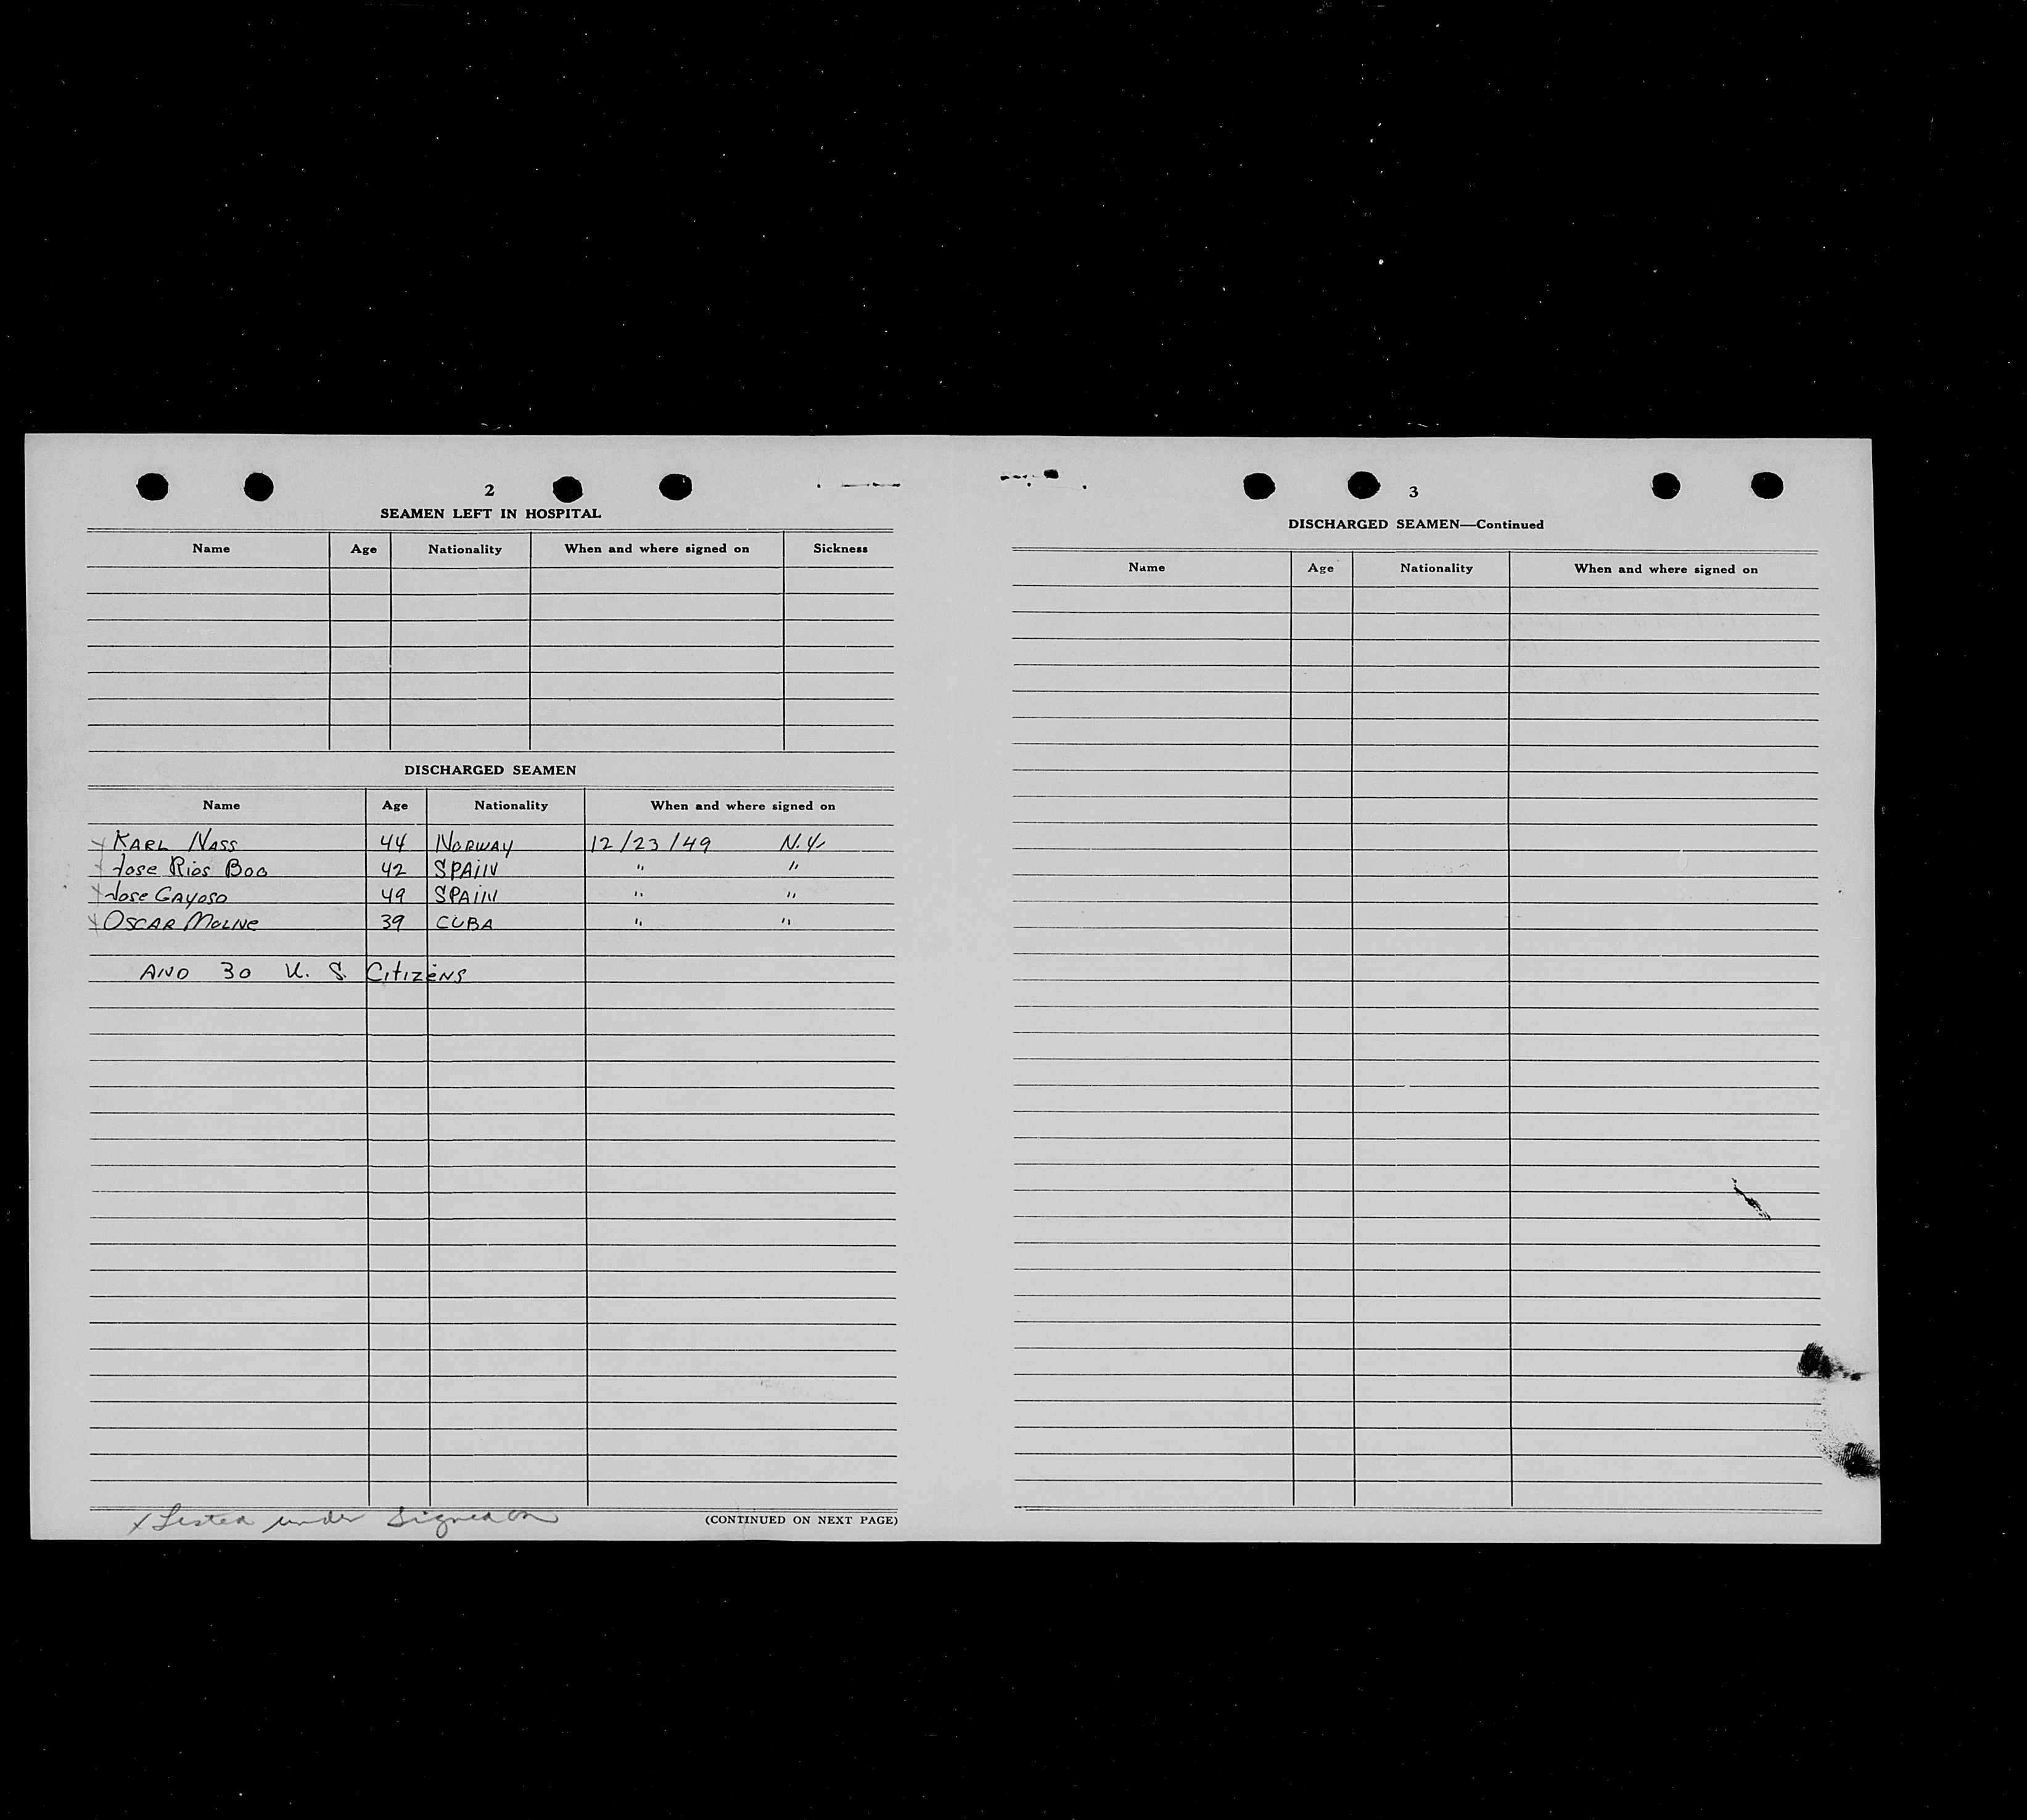 2
SEAMEN LEFT IN HOSPITAL
Name Age Nationality When and where signed on Sickness
DISCHARGED SEAMEN
Name Age Nationality When and where signed on
x KARL NASS 44 NORWAY 12/23/49 N.Y.
x Jose Rios Boo 42 SPAIN " "
x Jose GAYOSO 49 SPAIN " "
x OSCAR MOLINE 39 CUBA " "
AND 30 U. S. CitizENS
x Listed under Signed on
(CONTINUED ON NEXT PAGE)
3
DISCHARGED SEAMEN—Continued
Name Age Nationality When and where signed on